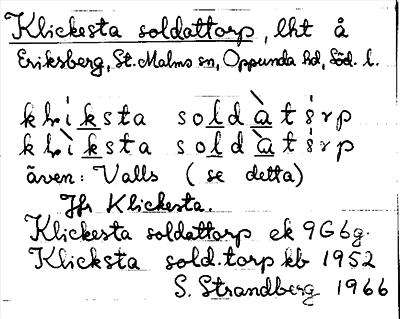 Klickesta soldattorp, lht å
Eriksberg, St. Malms sn, Oppunda hd, Söd. l.
klìksta soldàtòrp
klìksta soldàtòrp
även: Valls (se detta)
Jfr Klickesta.
Klickesta soldattorp ek 9G6g.
Klicksta sold.torp kb 1952
S. Strandberg 1966